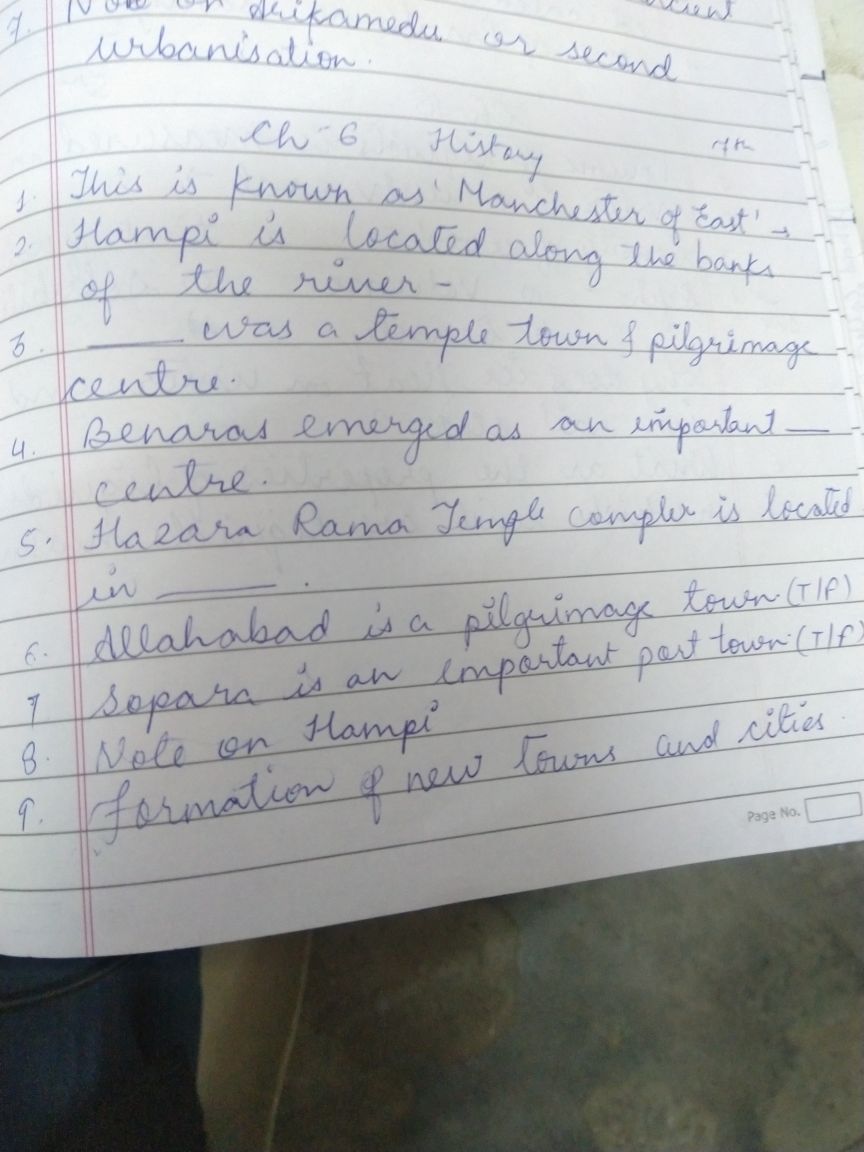 7. Note on Arikamedu or second
urbanisation.
Ch-6 History 7th
1. This is known as 'Manchester of East' →
2. Hampi is located along the banks
of the river -
3. ____ was a temple town & pilgrimage
centre.
4. Benaras emerged as an important ____
centre.
5. Hazara Rama Temple complex is located
in ____ .
6. Allahabad is a pilgrimage town. (T/F)
7 Sopara is an important port town. (T/F)
8. Note on Hampi
9. formation of new towns and cities.
Page No.